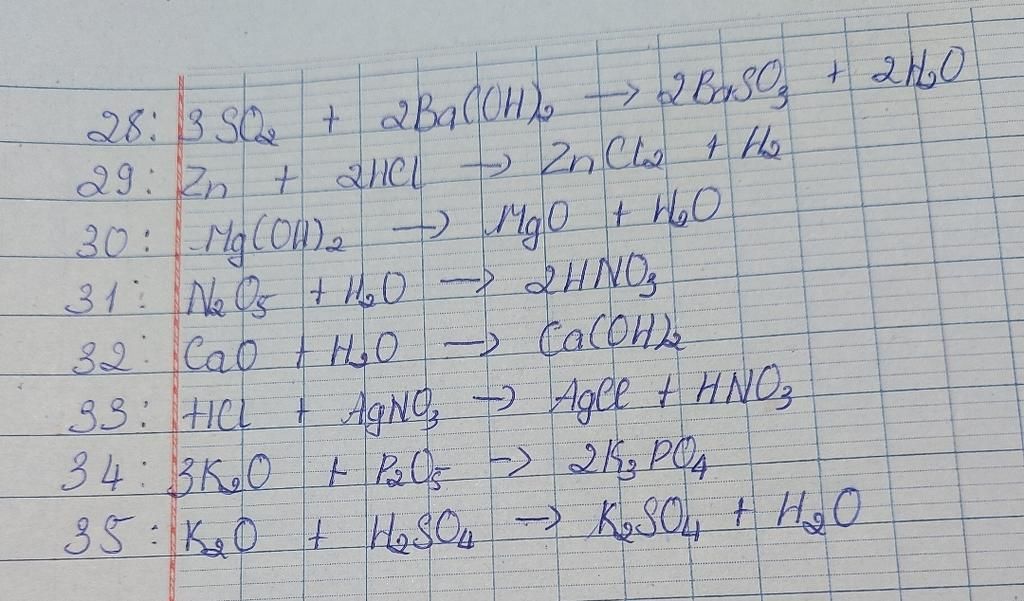 28: 3SO₂ + 2Ba(OH)₂ → 2BaSO₃ + 2H₂O
29: Zn + 2HCl → ZnCl₂ + H₂
30: Mg(OH)₂ → MgO + H₂O
31: N₂O₅ + H₂O → 2HNO₃
32: CaO + H₂O → Ca(OH)₂
33: HCl + AgNO₃ → AgCl + HNO₃
34: 3K₂O + P₂O₅ → 2K₃PO₄
35: K₂O + H₂SO₄ → K₂SO₄ + H₂O